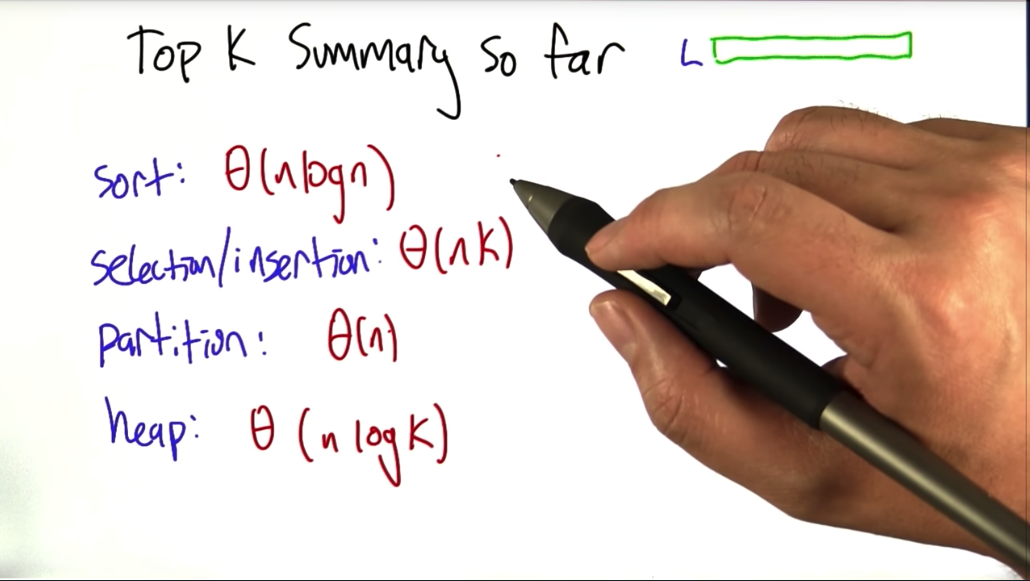 Top K Summary So far L
sort: Θ(nlogn)
selection/insertion: Θ(nK)
partition: Θ(n)
heap: Θ (n log K)